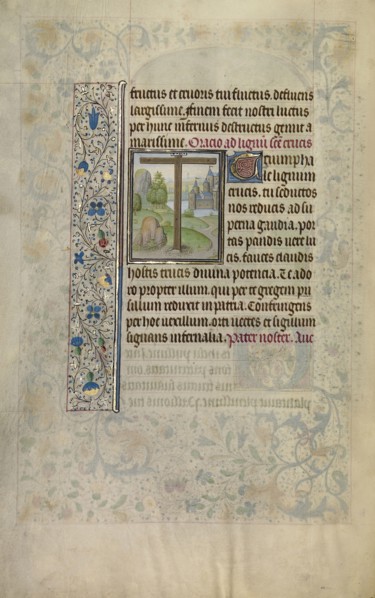 fructus et cruoris tui fluctus. defluens
largissime, finem fecit nostri luctus
per hunc infernus destructus gemit a
marissime. Oracio ad lignū scē crucis
Triumpha
le lignum
crucis. tu seductos
nos reducis. ad su
perna gaudia. por
tas pandis vere lu
cis. fauces claudis
hostis crucis divina potencia. Te ado
ro propter illum. qui per te gregem pu
sillum reduxit in patria. Contingens
per hoc vexillum. orti vectes et sigillum
signans infernalia. Pater noster. Ave